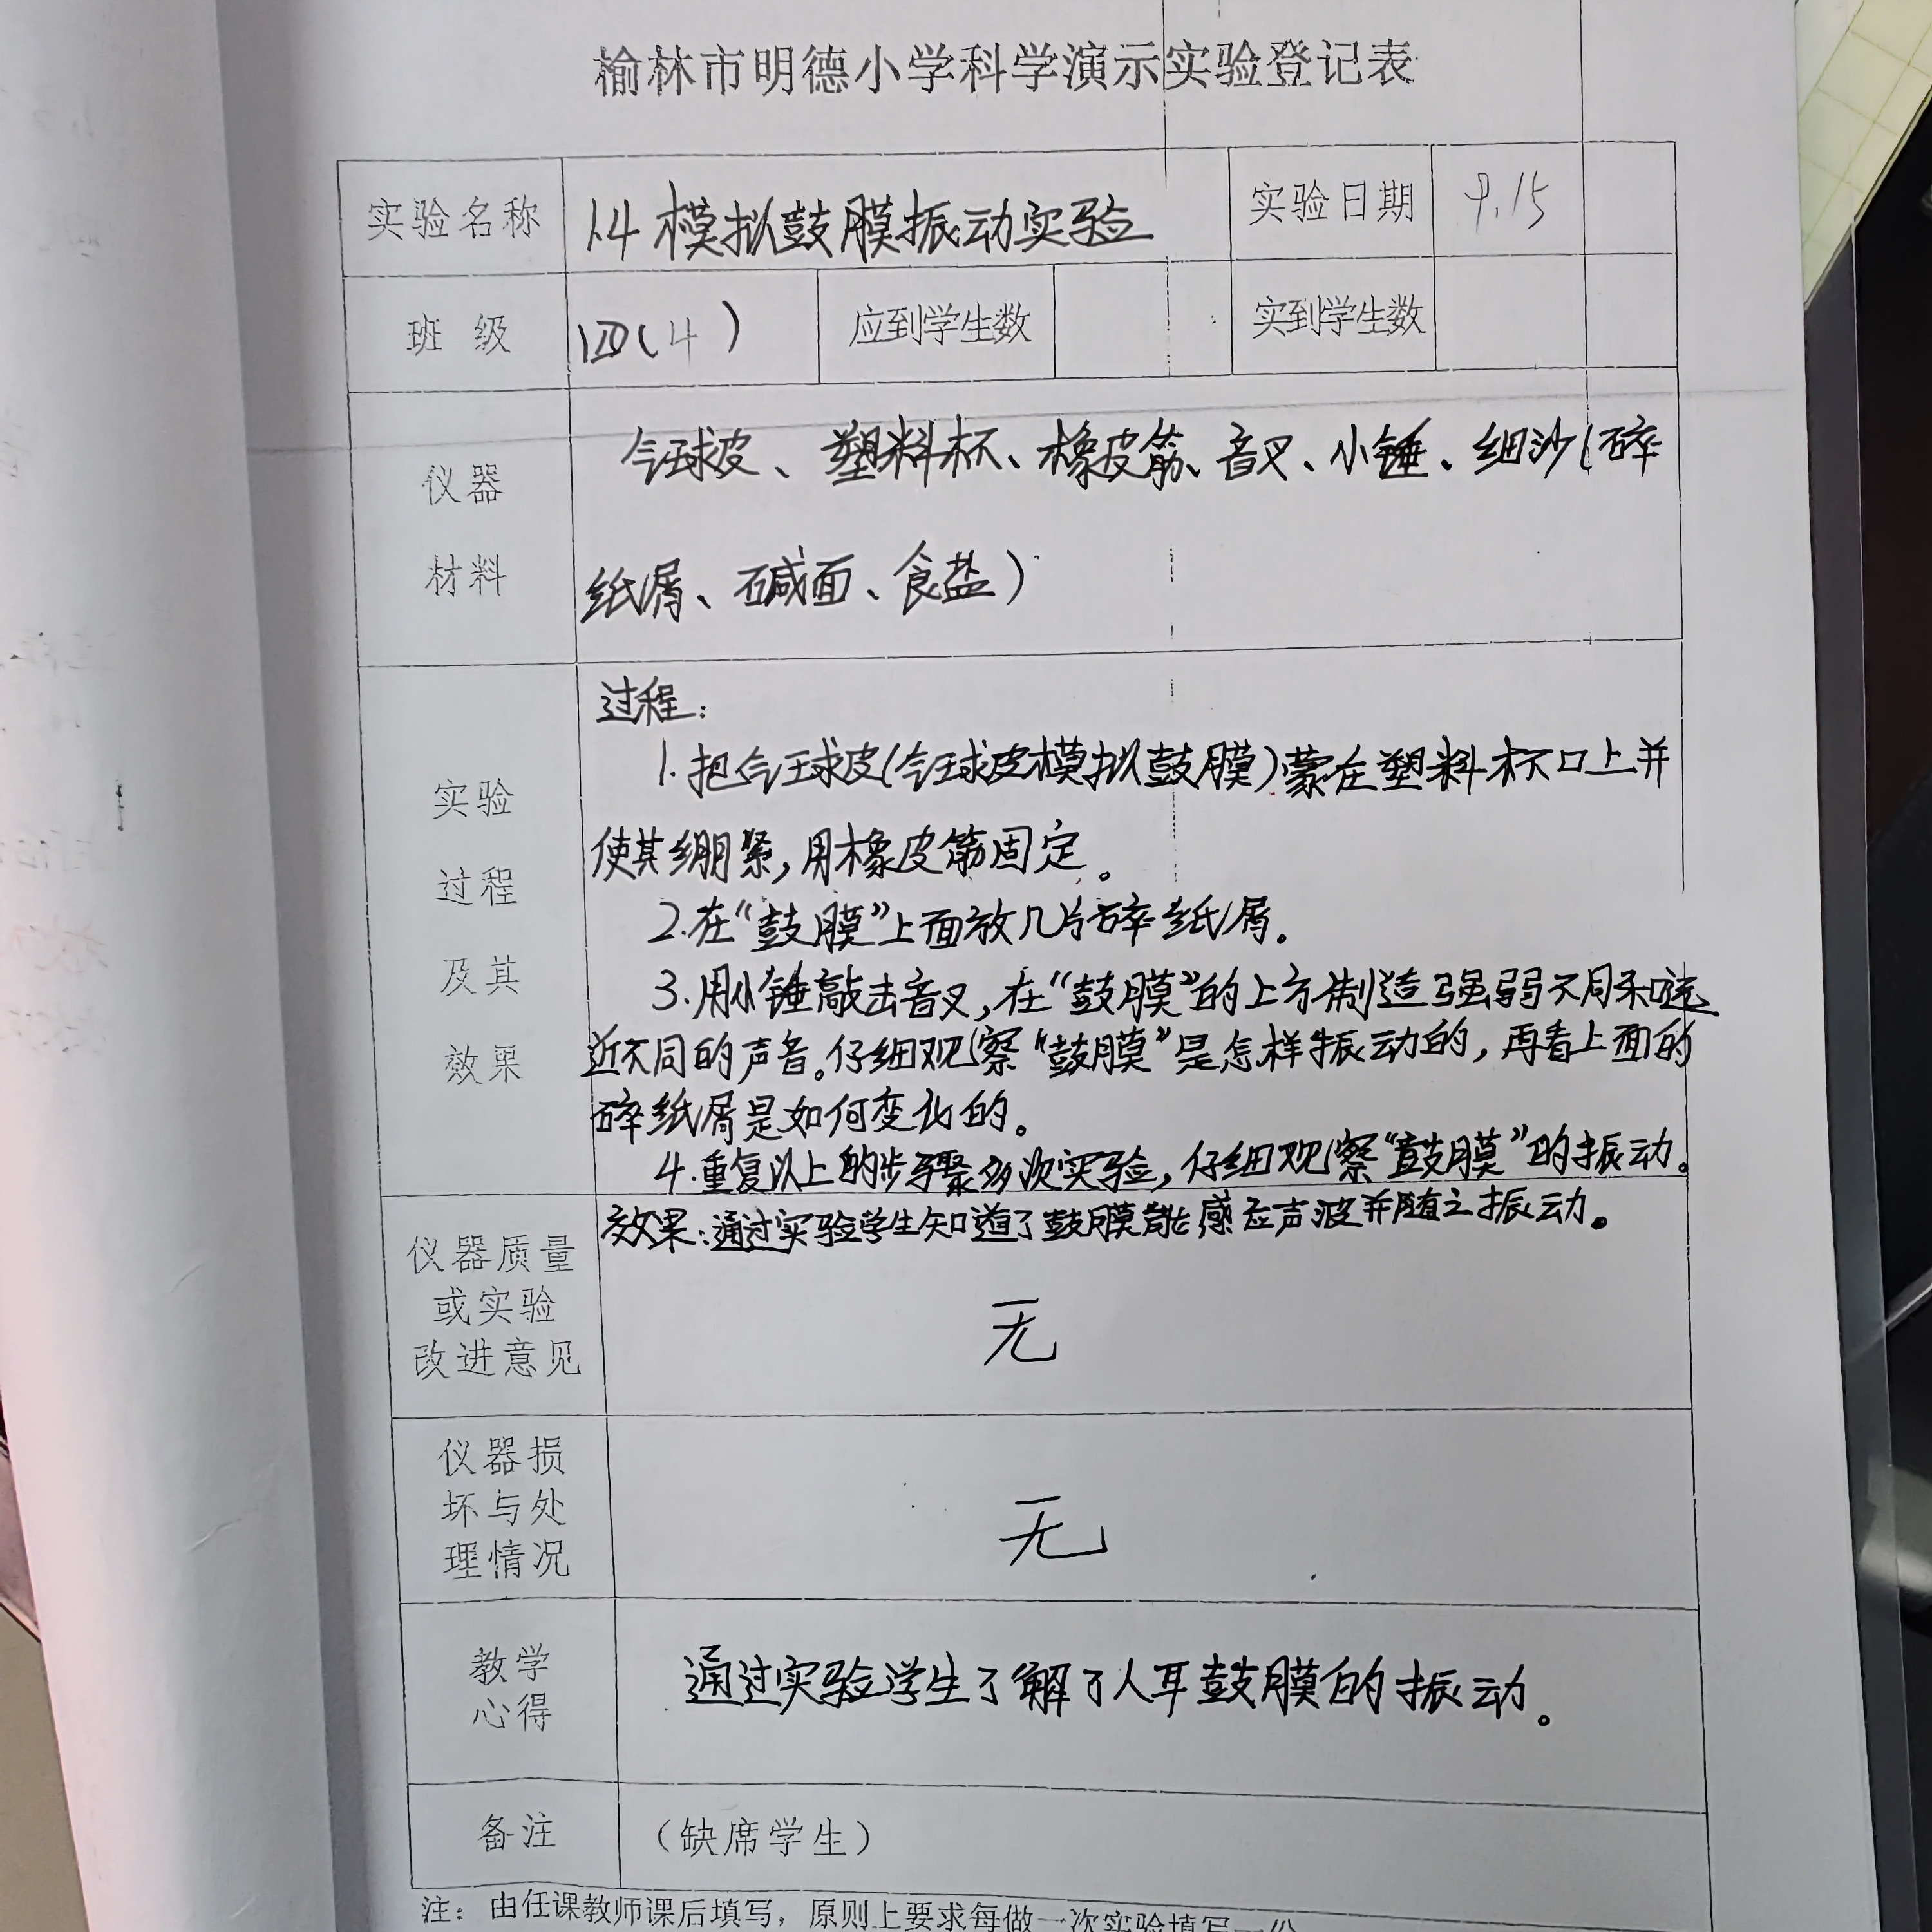 榆林市明德小学科学演示实验登记表
实验名称 1.4模拟鼓膜振动实验 实验日期 9.15
班级 四(4) 应到学生数 实到学生数
仪器 气球皮、塑料杯、橡皮筋、音叉、小锤、细沙(碎
材料 纸屑、碱面、食盐)
过程:
1.把气球皮(气球皮模拟鼓膜)蒙在塑料杯口上并
实验
使其绷紧,用橡皮筋固定。
过程
2.在“鼓膜”上面放几片碎纸屑。
及其
3.用小锤敲击音叉,在“鼓膜”的上方制造强弱不同和远
效果
近不同的声音。仔细观察“鼓膜”是怎样振动的,再看上面的
碎纸屑是如何变化的。
4.重复以上的步骤多次实验,仔细观察“鼓膜”的振动。
效果:通过实验学生知道了鼓膜能感应声波并随之振动。
仪器质量
或实验 无
改进意见
仪器损
坏与处 无
理情况
教学 通过实验学生了解了人耳鼓膜的振动。
心得
备注 (缺席学生)
注:由任课教师课后填写,原则上要求每做一次实验填写一份